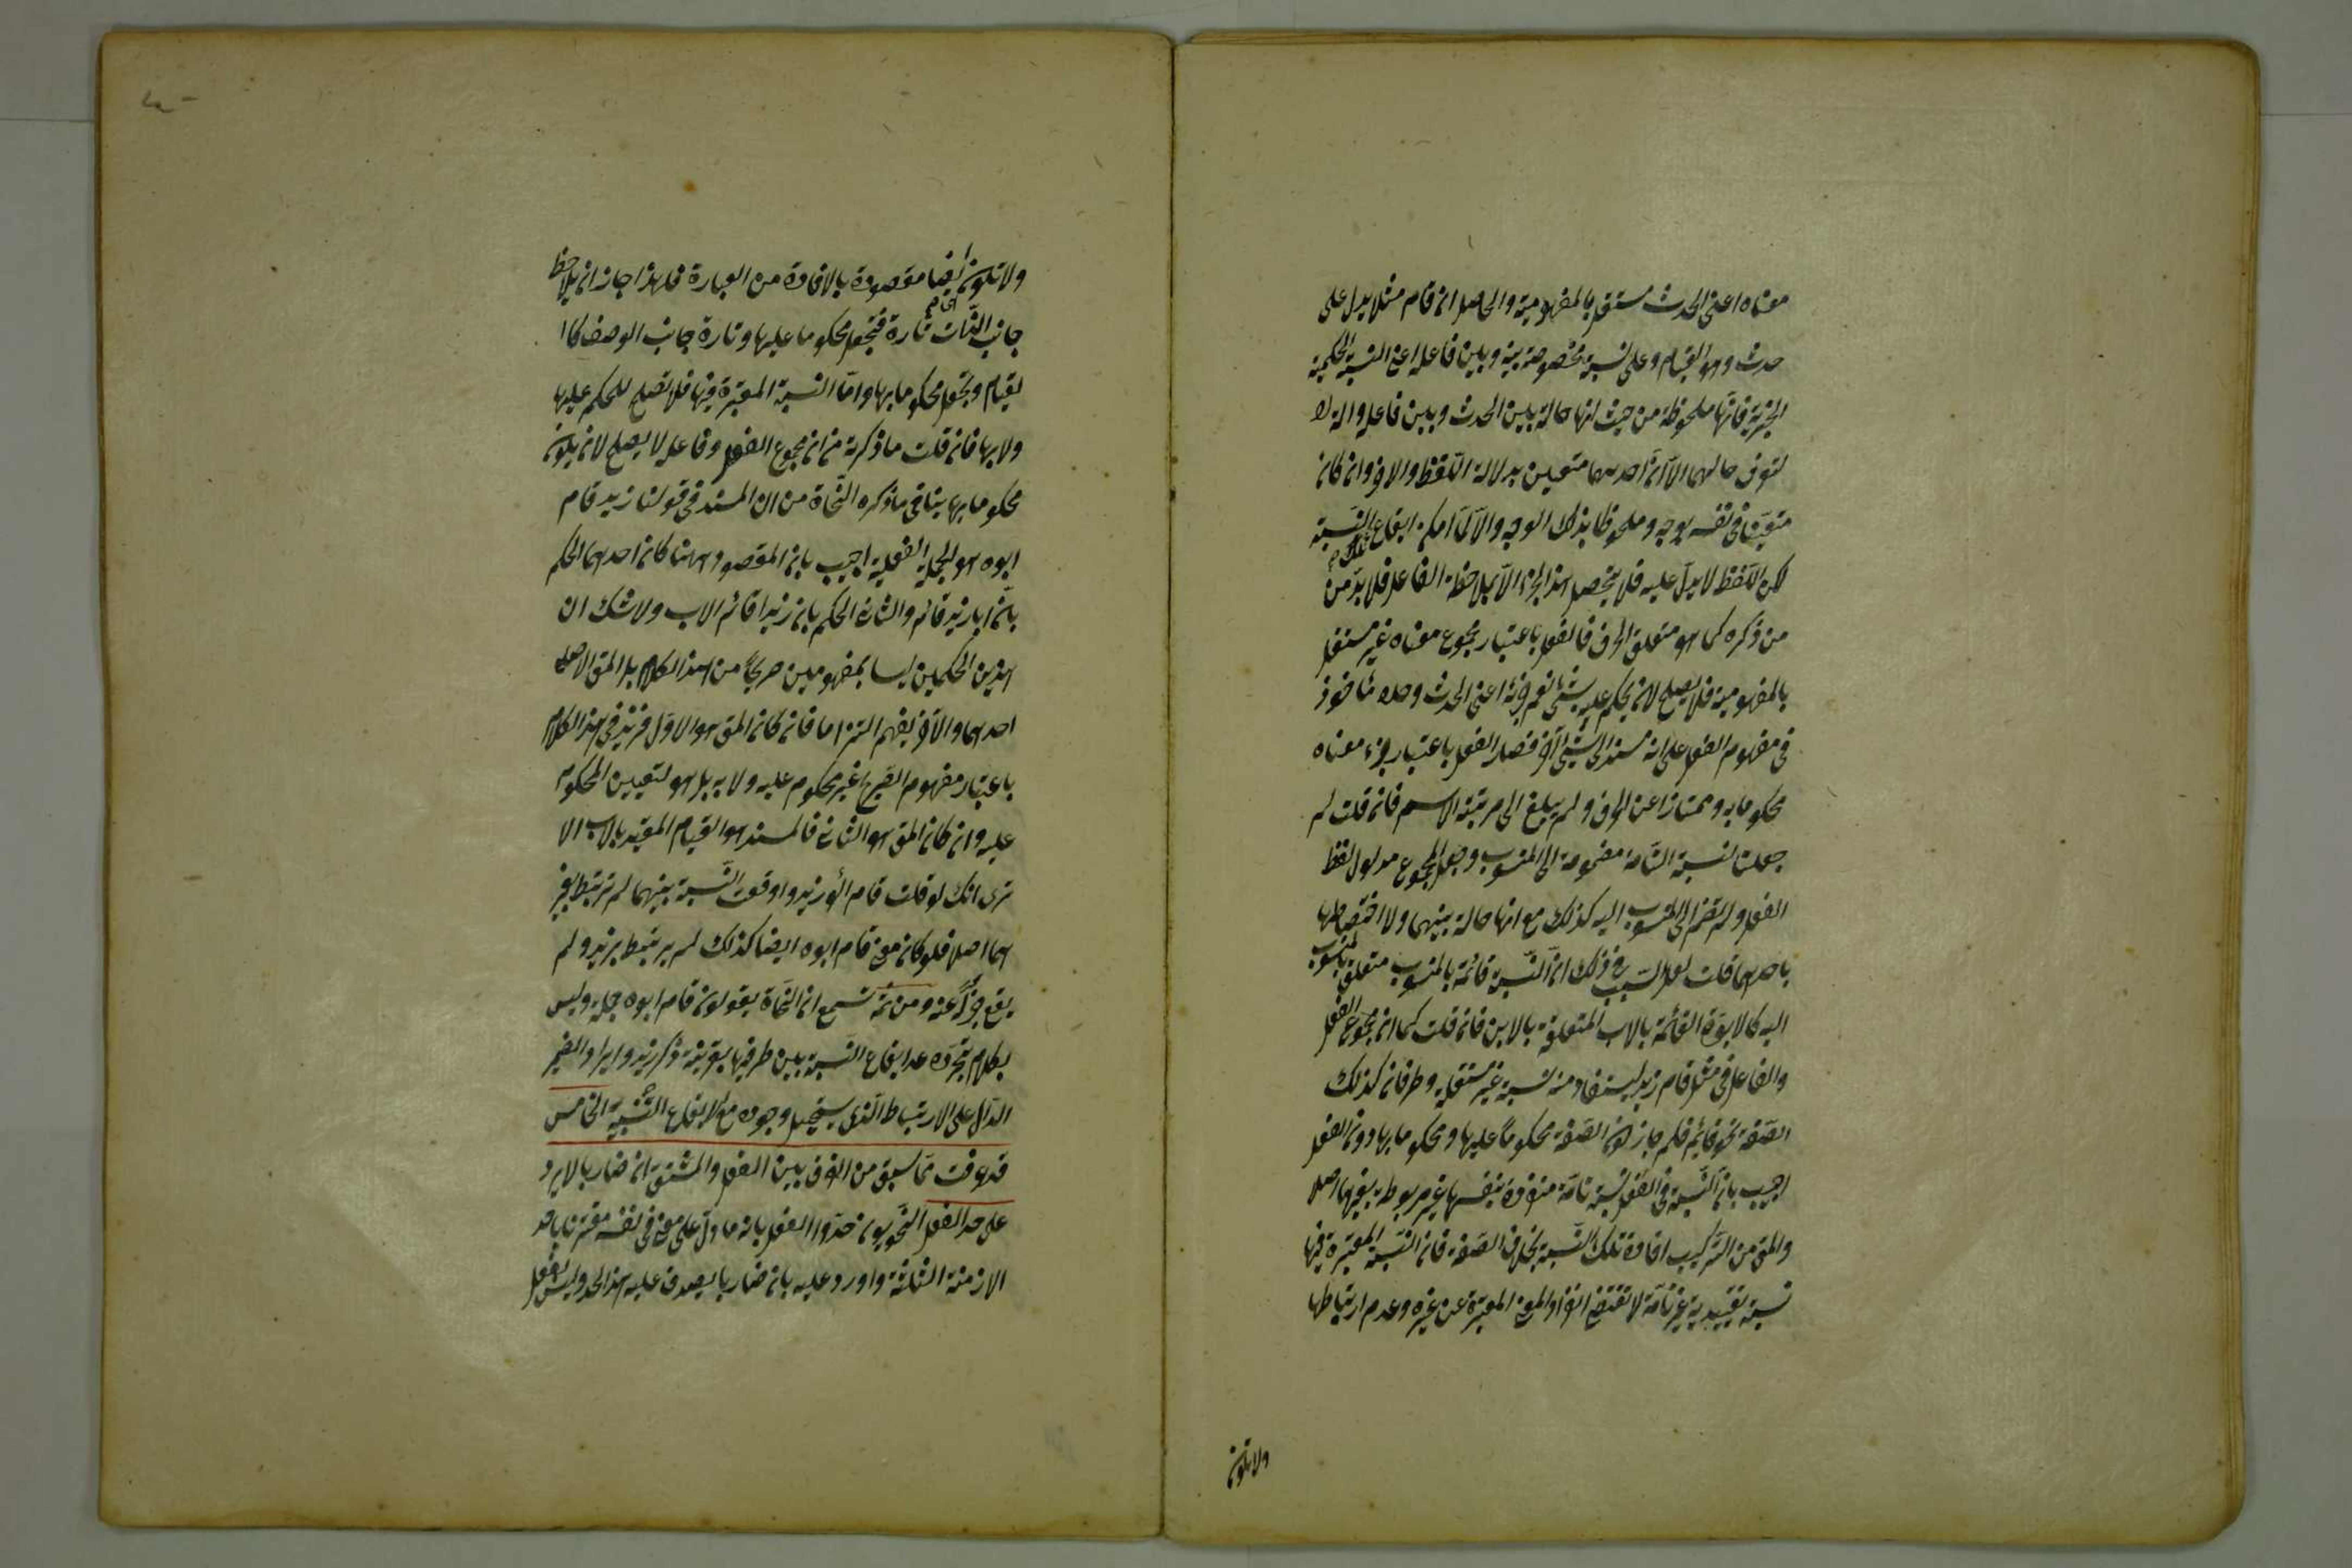 معناه اعنى الحدث مستقل بالمفهومية والحاصل ان قام مثلا يدل على
حدث وهو القيام وعلى نسبة مخصوصة بينه وبين فاعله اعنى النسبة الحكمية
الخبرية فانها ملحوظة من حيث انها حالة بين الحدث وبين فاعله والة لا
لتعرف حالهما الا ان احدهما متعين بدلالة اللفظ والاخر وان كان
متعينا فى نفسه بوجه وملحوظا بذلك الوجه والا لما امكن ايقاع تلك النسبة
لكن اللفظ لا يدل عليه فلا يتحصل هذا الجزء الا بملاحظة الفاعل فلا بد من
من ذكره كما هو متعلق الحرف فالفعل باعتبار مجموع معناه غير مستقل
بالمفهومية فلا يصلح لان يحكم عليه بشئ نعم جزئه اعنى الحدث وحده مأخوذ
فى مفهوم الفعل على انه مسند الى شئ آخر فصار الفعل باعتبار جزء معناه
محكوما به وممتازا عن الحرف ولم يبلغ الى مرتبة الاسم فان قلت لم
جعلت النسبة التامة مضمومة الى المنسوب وجعل المجموع مدلول لفظ
الفعل ولم تضم الى المنسوب اليه كذلك مع انها حالة بينهما ولا اختصاص لها
باحدهما قلت لعل السبب فى ذلك ان النسبة قائمة بالمنسوب متعلقة بالمنسوب
اليه كالابوة القائمة بالاب المتعلقة بالابن فان قلت كما ان مجموع الفعل
والفاعل فى مثل قام زيد يستفاد منه نسبة غير مستقلة وطرفان كذلك
الصفة نحو قائم فلم جاز كون الصفة محكوما عليها ومحكوما بها دون الفعل
اجيب بان النسبة فى الفعل نسبة تامة منفردة بنفسها غير مربوطة بغيرها اصلا
والمق من التركيب افادة تلك النسبة بخلاف الصفة فان النسبة المعتبرة فيها
نسبة تقييدية غير تامة لا تقتضى انفراد المعنى المعتبرة عن غيره وعدم ارتباطها
ولا تكون
ولا تكون ايضا مقصودة بالافادة من العبارة فلهذا جاز ان يلاحظ
جانب الذات تارة فتجعل محكوما عليها وتارة جانب الوصف كا ا
لقيام ويجعل محكوما بها واما النسبة المعتبرة فيها فلا تصلح للحكم عليها
ولا بها فان قلت ما ذكرته من ان مجموع الفعل وفاعله لا يصلح لان يكون
محكوما بها ينافى ما ذكره النحاة من ان المسند فى قولنا زيد قام
ابوه هو الجملة الفعلية اجيب بان المقصود هناك احدهما الحكم
بان ابا زيد قائم والثانى الحكم بان زيدا قائم الاب ولا شك ان
هذين الحكمين ليسا بمفهومين صريحا من هذا الكلام بل المق الاصلى
احدهما والآخر يفهم التزاما فان كان المق هو الاول فزيد فى هذا الكلام
باعتبار مفهوم الصريح غير محكوم عليه ولا به بل هو لتعيين المحكوم
عليه وان كان المق هو الثانى فالمسند هو القيام المقيد بالاب الا
ترى انك لو قلت قام ابو زيد واوقعت النسبة بينهما لم ترتبط بغير
هما اصلا فلو كان معنى قام ابوه ايضا كذلك لم يرتبط بزيد ولم
يقع خبرا عنه ومن ثمة تسمع ان النحاة يقولون قام ابوه جملة وليس
بكلام لتجرده عن ايقاع النسبة بين طرفيها بقرينة ذكر زيد وايراد الضمير
الدال على الارتباط الذى يستحيل وجوده مع الايقاع التنبيه الخامس
قد عرفت مما سبق من الفرق بين الفعل والمشتق ان ضاربا لا يرد
على حد الفعل النحويون حدوا الفعل بانه ما دل على معنى فى نفسه مقترن باحد
الازمنة الثلثة واورد عليه بان ضاربا يصدق عليه هذا الحد وليس بفعل